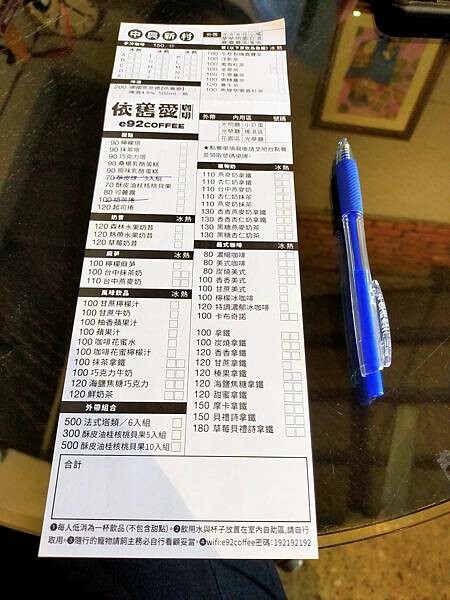 中興新村
手沖咖啡 150/杯
啤酒
依舊愛 咖啡
e92COFFEE
甜點
90 檸檬塔
90 抹茶塔
90 巧克力塔
90 桑椹乳酪蛋糕
90 原味乳酪蛋糕
70 酥皮油桂核桃貝果
80 可麗露
120 起司捲
奶昔 冰 熱
120 森林水果奶昔
120 熱帶水果奶昔
120 草莓奶昔
麻芛 冰 熱
100 檸檬麻芛
100 台中抹茶奶
110 台中燕麥奶
風味飲品 冰 熱
100 甘蔗檸檬汁
100 甘蔗牛奶
100 柚香蘋果汁
100 蘋果汁
100 咖啡花蜜水
100 咖啡花蜜檸檬汁
100 抹茶拿鐵
100 巧克力牛奶
120 海鹽焦糖巧克力
120 鮮奶茶
外帶組合
500 法式塔類/6入組
300 酥皮油桂核桃貝果5入組
500 酥皮油桂核桃貝果10入組
外帶 內用區 號碼
★點餐單填寫後請至吧台點餐
並領取號碼桌牌
植物奶 冰 熱
110 燕麥奶拿鐵
110 杏仁奶拿鐵
110 台中燕麥奶
110 燕麥奶抹茶
130 香香燕麥奶拿鐵
130 香香杏仁奶拿鐵
130 黑糖燕麥奶茶
130 黑糖杏仁奶茶
義式咖啡 冰 熱
80 濃縮咖啡
80 美式咖啡
80 炭燒美式
100 香香美式
100 甘蔗美式
100 檸檬冰咖啡
120 特調濃郁冰咖啡
100 卡布奇諾
100 拿鐵
100 炭燒拿鐵
120 香香拿鐵
120 甘蔗拿鐵
120 榛果拿鐵
120 海鹽焦糖拿鐵
120 甜蜜拿鐵
150 摩卡拿鐵
150 貝禮詩拿鐵
180 草莓貝禮詩拿鐵
合計
❶每人低消為一杯飲品(不包含甜點)。❷飲用水與杯子放置在室內自助區,請自行
取用。❸隨行的寵物請飼主務必自行看顧妥當。❹wifi:e92coffee密碼:192192192